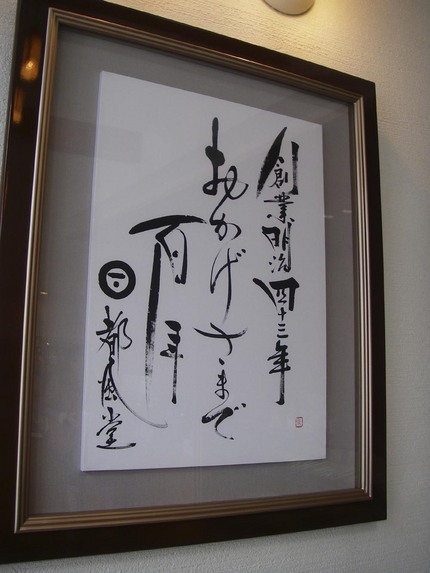 創業明治四十三年
おかげさまで
百年
都風堂